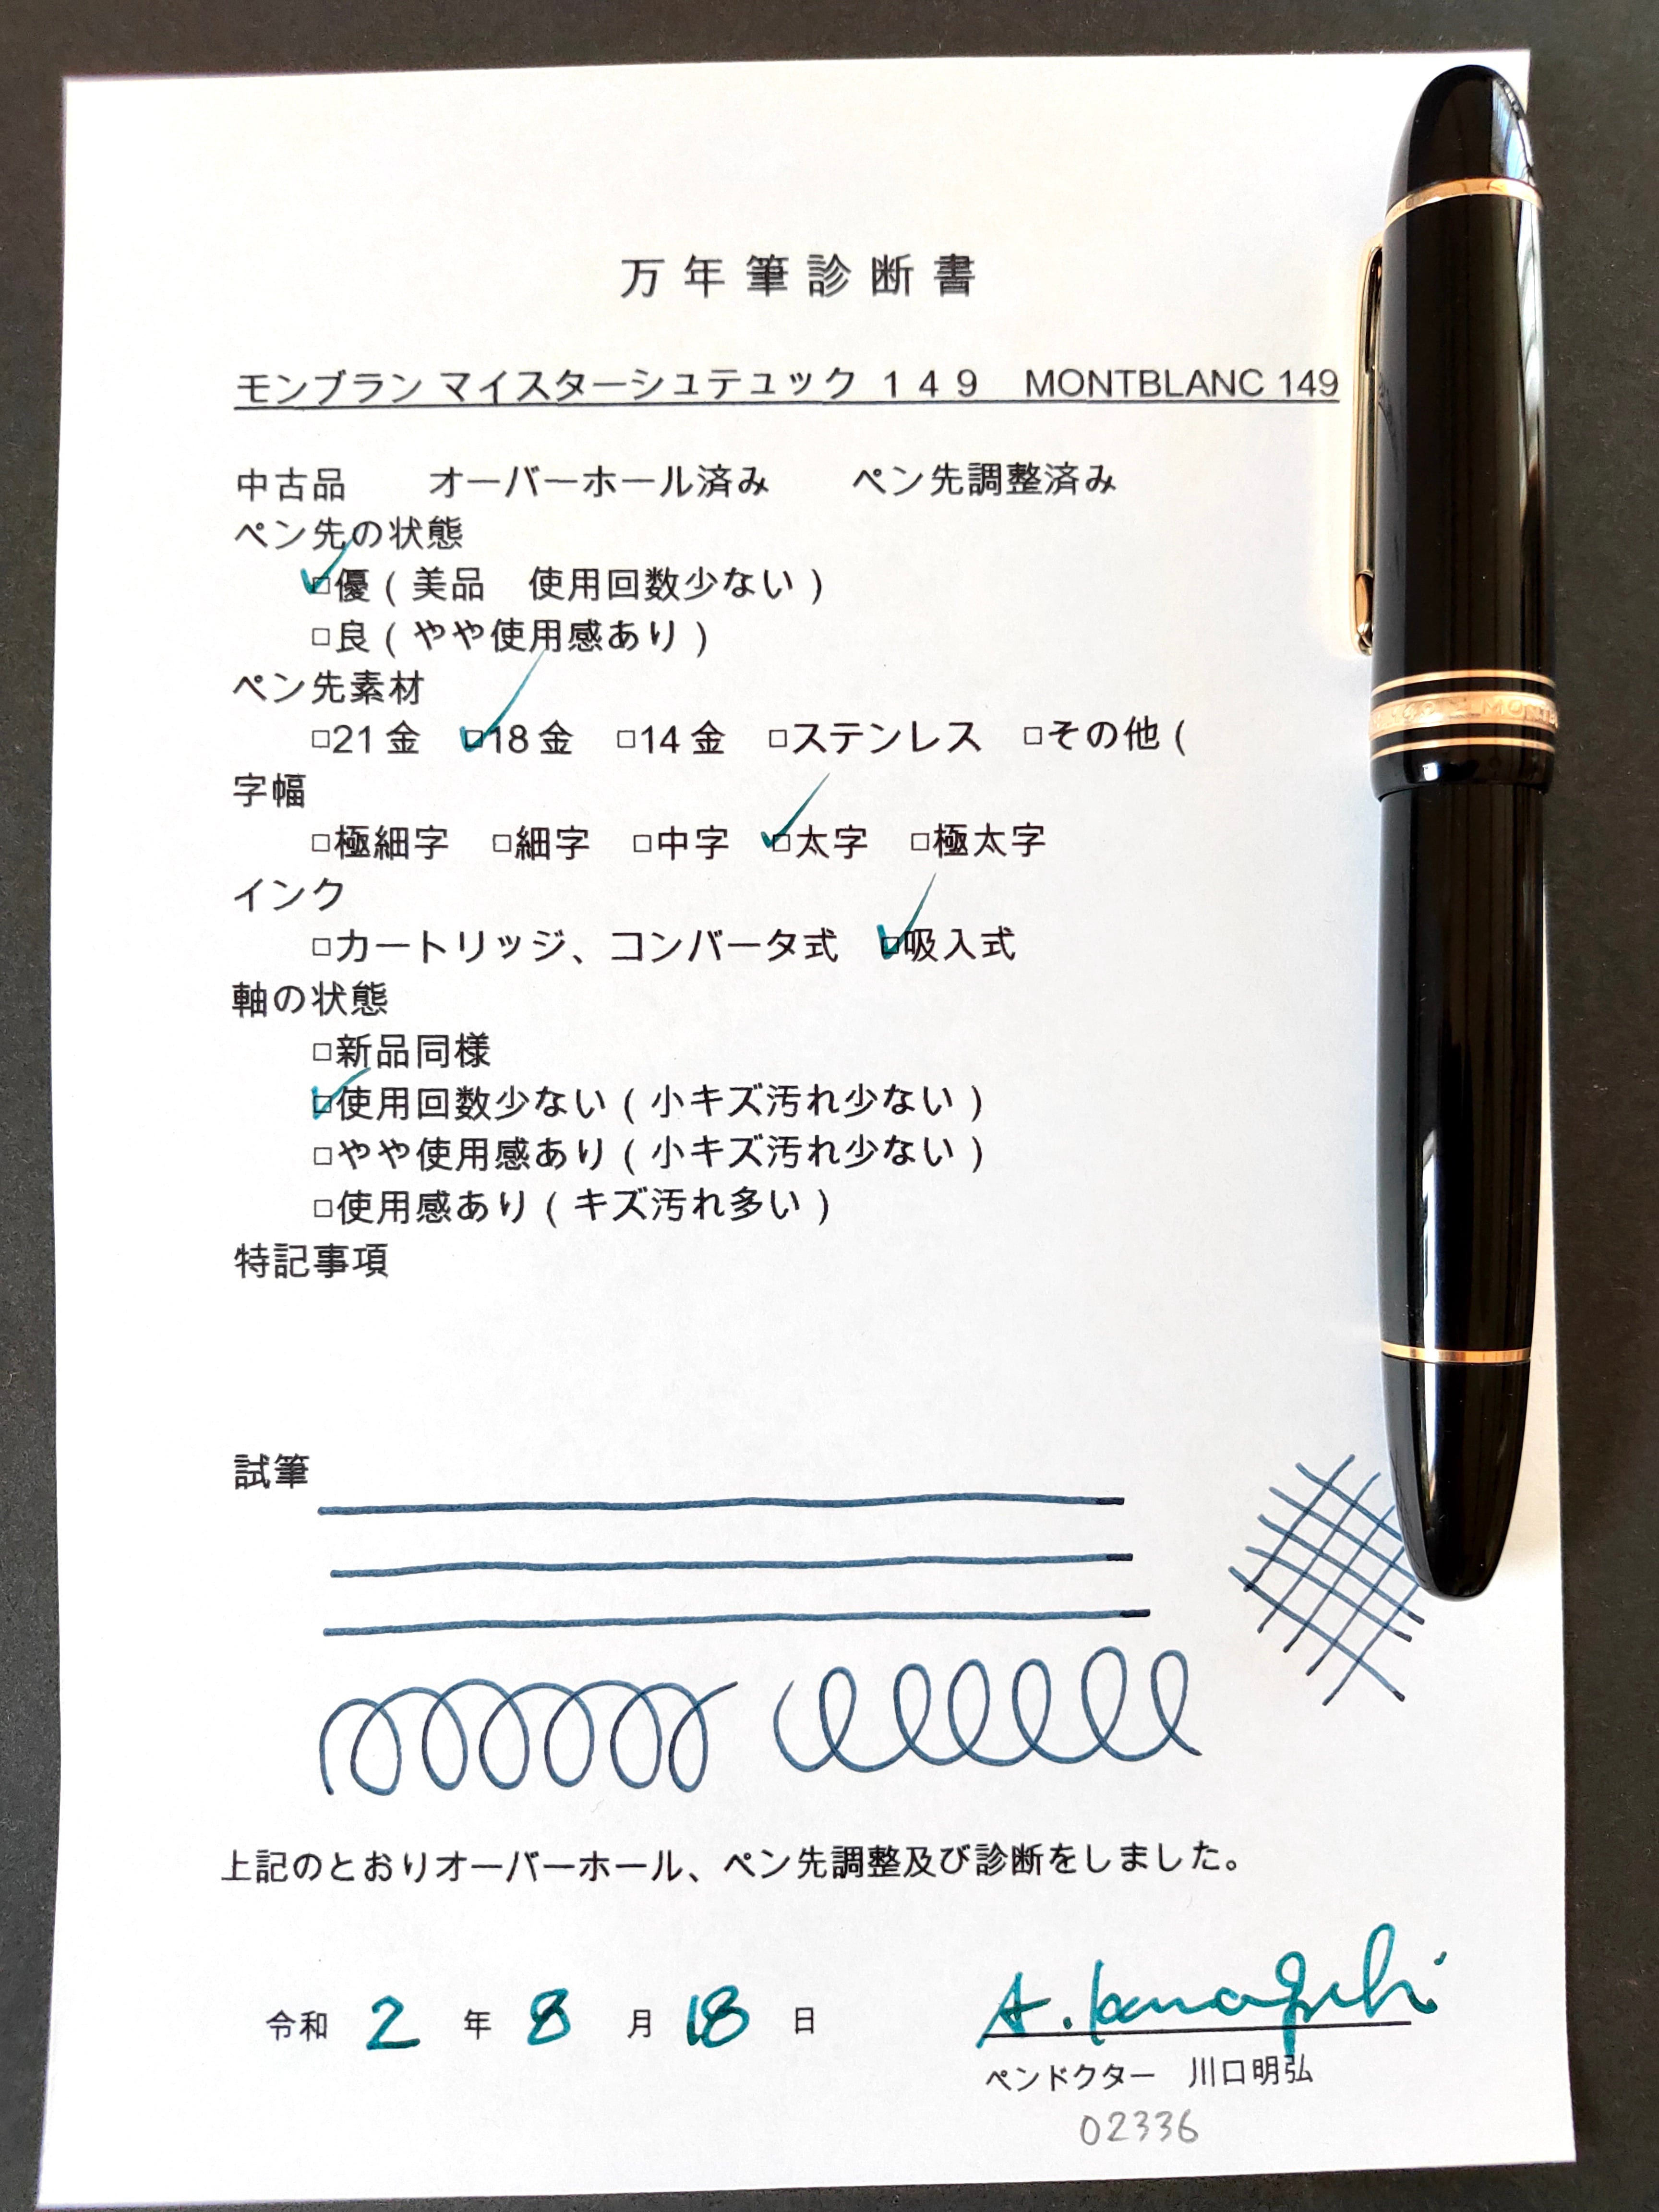 万年筆診断書
モンブラン マイスターシュテュック １４９　MONTBLANC 149
中古品　オーバーホール済み　ペン先調整済み
ペン先の状態
☑優（美品　使用回数少ない）
□良（やや使用感あり）
ペン先素材
□21金　☑18金　□14金　□ステンレス　□その他（
字幅
□極細字　□細字　□中字　☑太字　□極太字
インク
□カートリッジ、コンバータ式　☑吸入式
軸の状態
□新品同様
☑使用回数少ない（小キズ汚れ少ない）
□やや使用感あり（小キズ汚れ少ない）
□使用感あり（キズ汚れ多い）
特記事項
試筆
上記のとおりオーバーホール、ペン先調整及び診断をしました。
令和 2 年 8 月 18 日
A. Kawaguchi
ペンドクター　川口明弘
02336